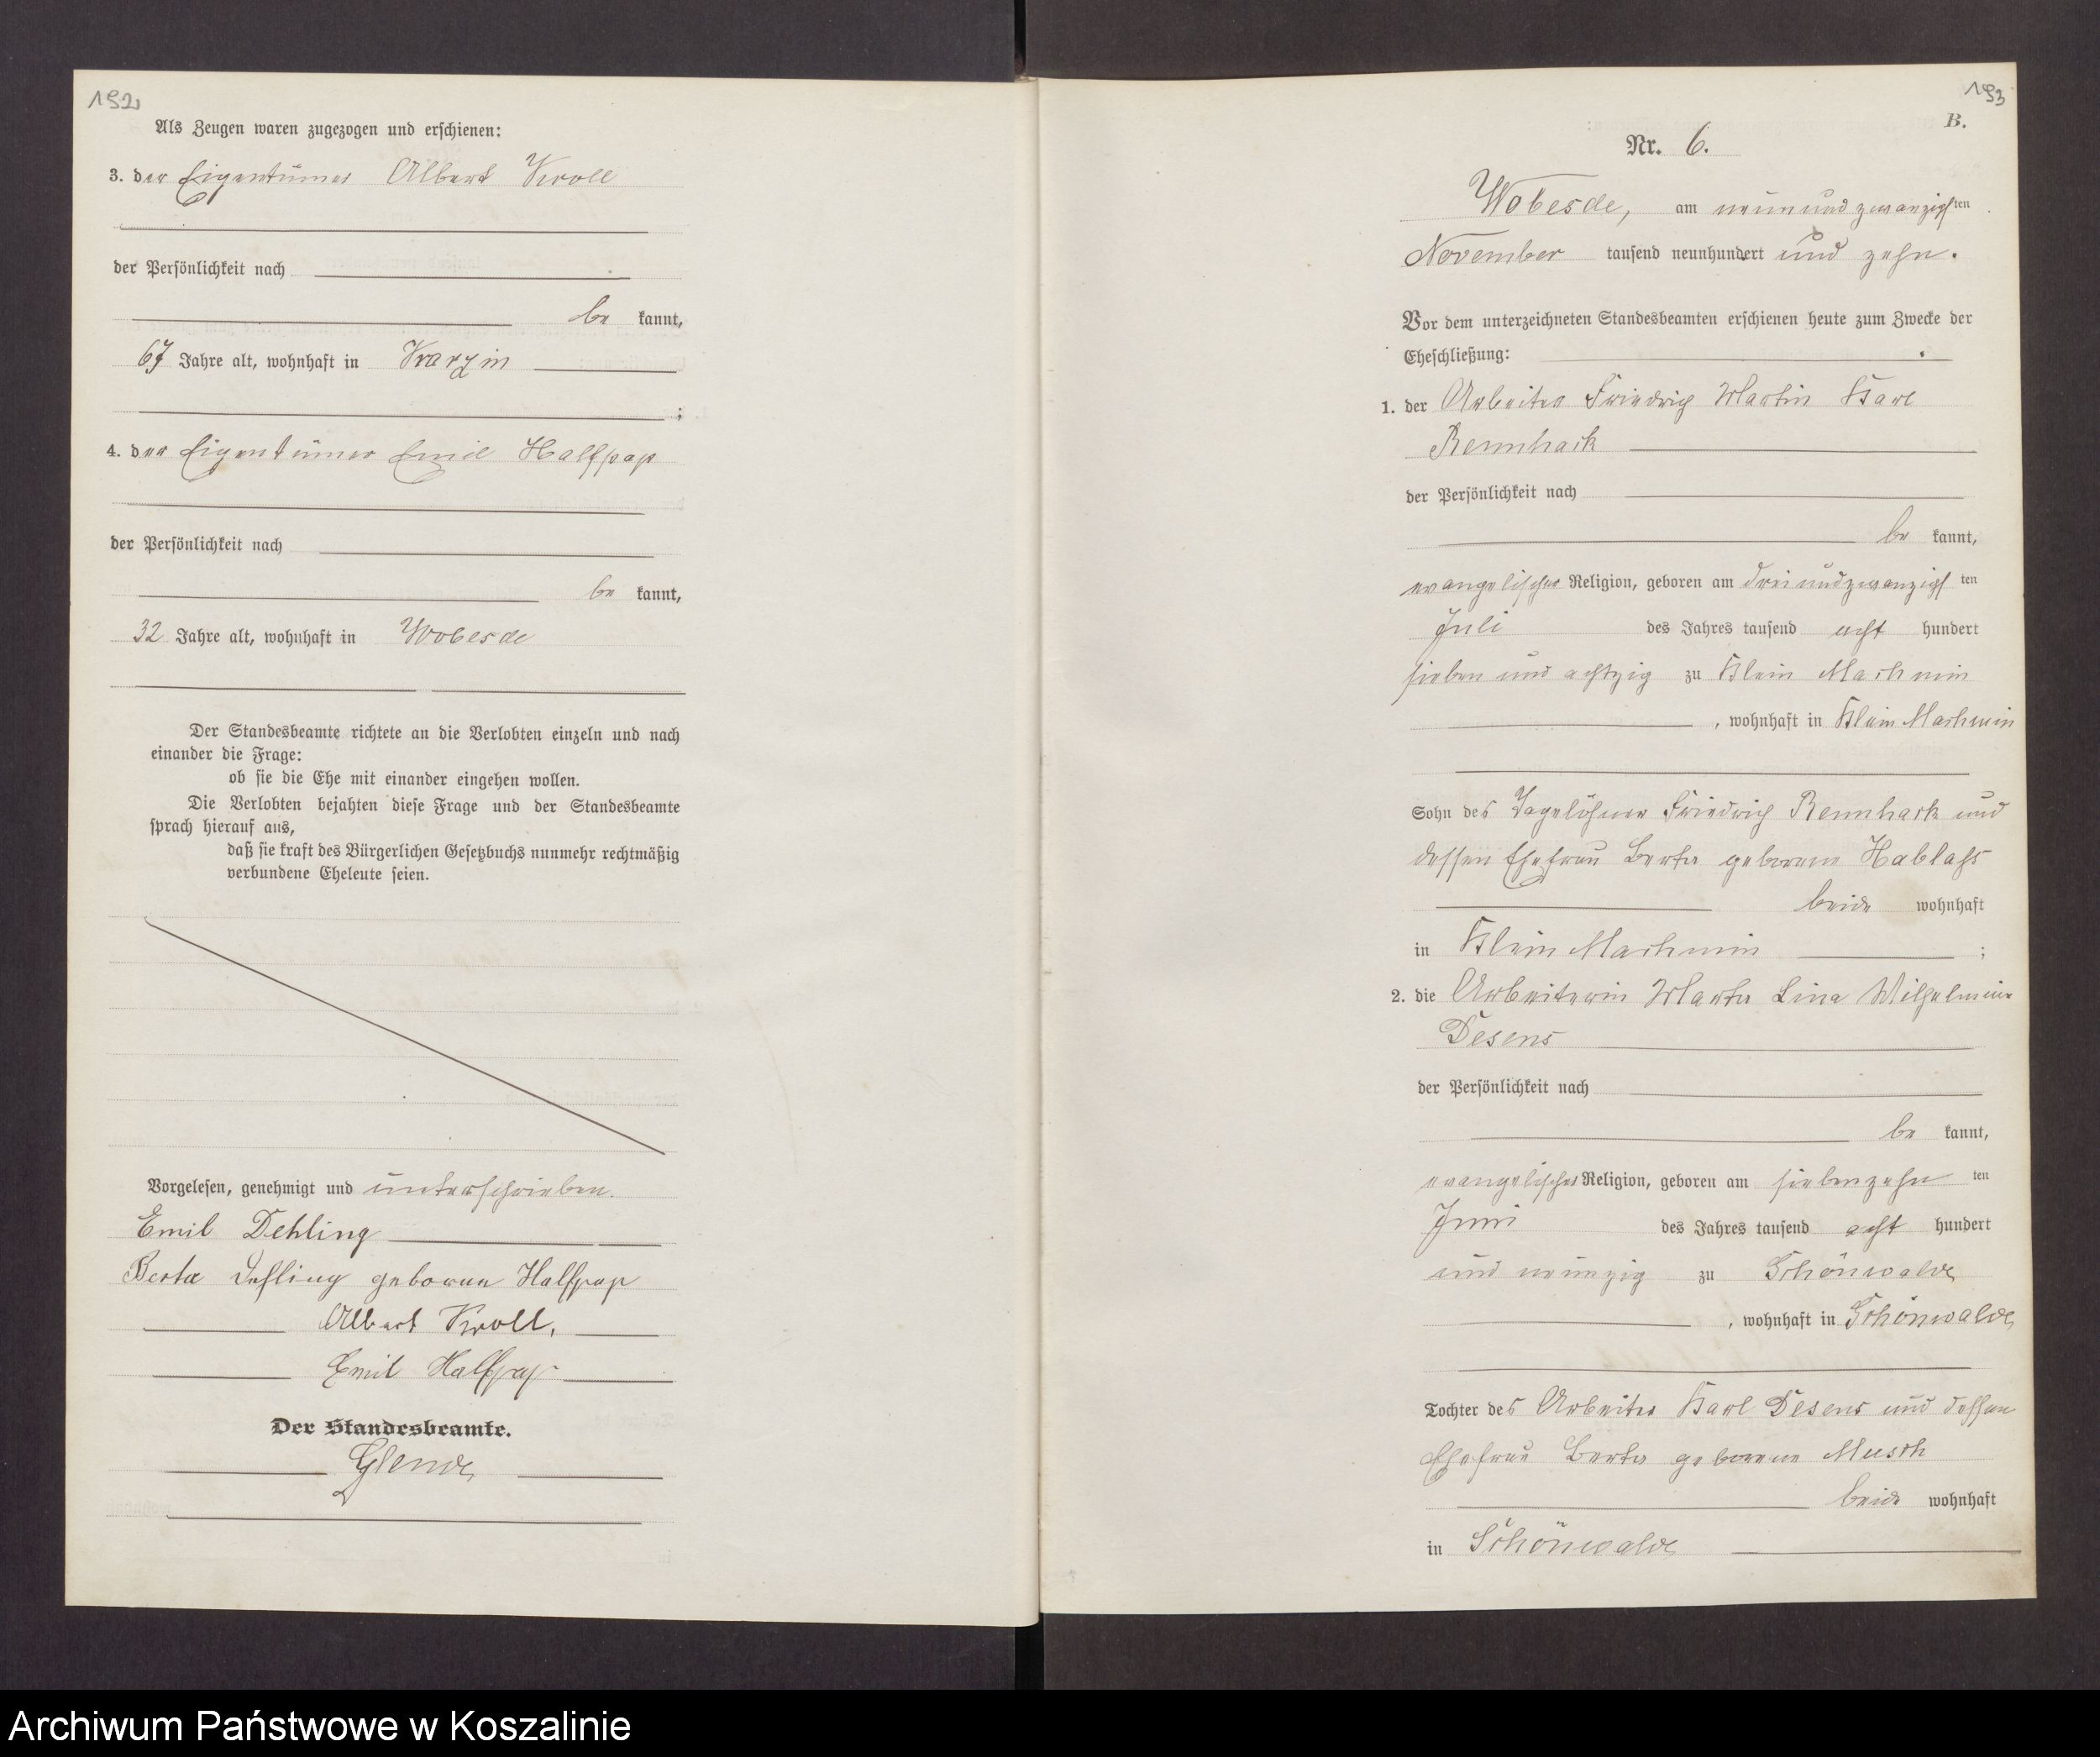 192
Als Zeugen waren zugezogen und erschienen:
3. der Eigentümer Albert Kroll
der Persönlichkeit nach
be kannt,
67 Jahre alt, wohnhaft in Karzin
;
4. der Eigentümer Emil Halfpap
der Persönlichkeit nach
be kannt,
32 Jahre alt, wohnhaft in Wobesde
Der Standesbeamte richtete an die Verlobten einzeln und nach
einander die Frage:
ob sie die Ehe mit einander eingehen wollen.
Die Verlobten bejahten diese Frage und der Standesbeamte
sprach hierauf aus,
daß sie kraft des Bürgerlichen Gesetzbuchs nunmehr rechtmäßig
verbundene Eheleute seien.
Vorgelesen, genehmigt und unterschrieben.
Emil Dehling
Berta Dehling geborene Halfpap
Albert Kroll.
Emil Halfpap
Der Standesbeamte.
Glende
193
B.
Nr. 6.
Wobesde, am neunundzwanzigsten
November tausend neunhundert und zehn.
Vor dem unterzeichneten Standesbeamten erschienen heute zum Zwecke der
Eheschließung:
1. der Arbeiter Friedrich Martin Karl
Rennhack
der Persönlichkeit nach
be kannt,
evangelischer Religion, geboren am dreiundzwanzigsten
Juli des Jahres tausend acht hundert
sieben und achtzig zu Klein Machmin
, wohnhaft in Klein Machmin
Sohn des Tagelöhner Friedrich Rennhack und
dessen Ehefrau Berta geborene Hablass
beide wohnhaft
in Klein Machmin ;
2. die Arbeiterin Marta Lina Wilhelmine
Desens
der Persönlichkeit nach
be kannt,
evangelischer Religion, geboren am siebenzehn ten
Juni des Jahres tausend acht hundert
und neunzig zu Schönwalde
, wohnhaft in Schönwalde
Tochter des Arbeiter Karl Desens und dessen
Ehefrau Berta geborene Musch
beide wohnhaft
in Schönwalde
Archiwum Państwowe w Koszalinie